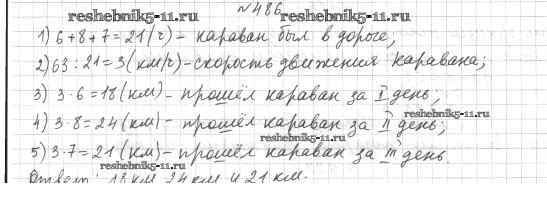 reshebnik5-11.ru
№486
1) 6+8+7=21(ч) - караван был в дороге;
reshebnik5-11.ru
2) 63:21=3(км/ч) - скорость движения каравана;
3) 3·6=18(км) - прошёл караван за I день;
reshebnik5-11.ru
4) 3·8=24(км) - прошёл караван за II день;
reshebnik5-11.ru
5) 3·7=21(км) - прошёл караван за III день.
reshebnik5-11.ru
Ответ: 18 км, 24 км и 21 км.